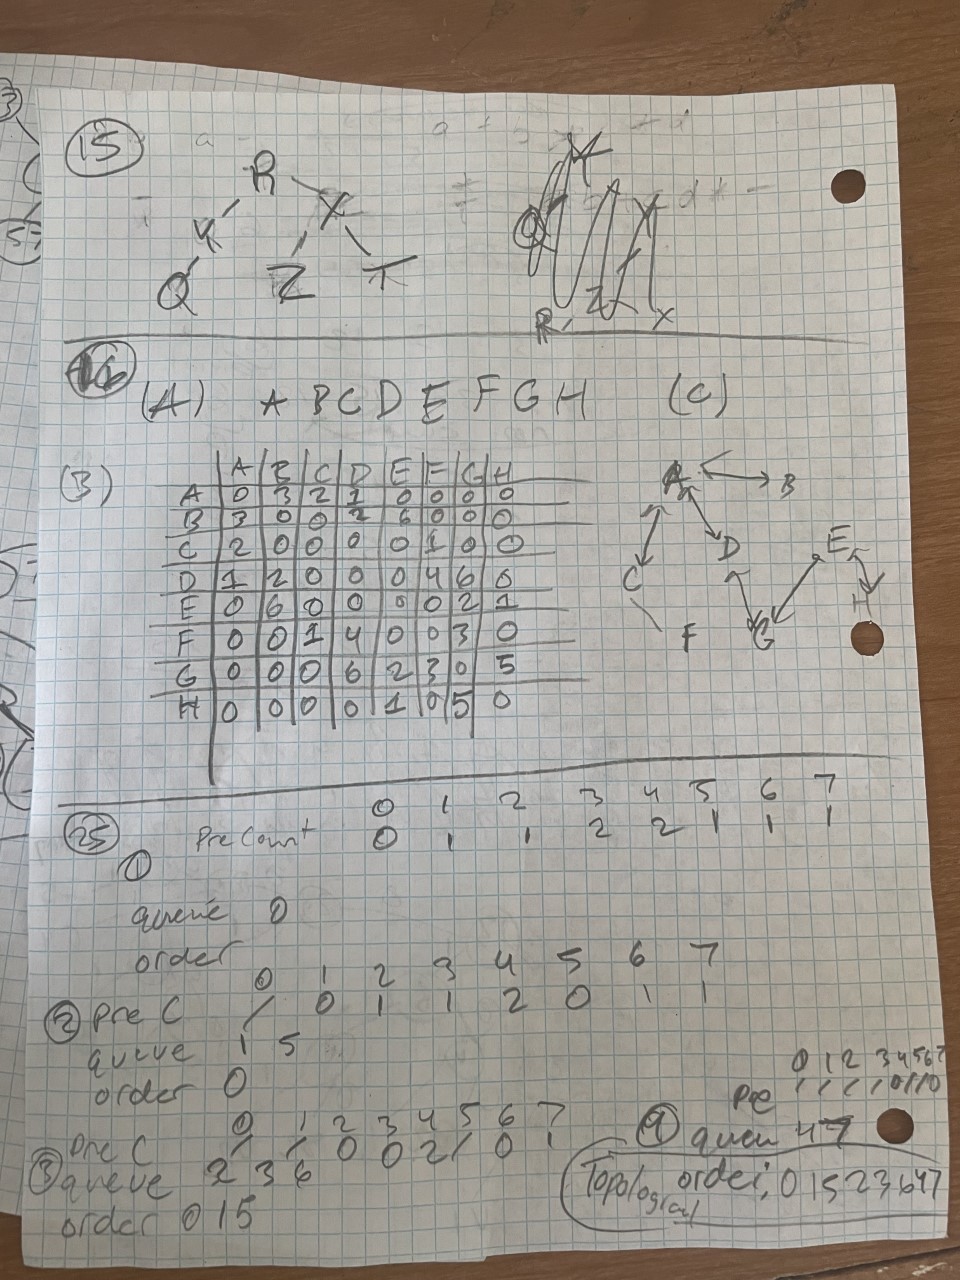 15
R
Y X
Q Z T
Q
R Z X
16
(A) A B C D E F G H (C)
(B)
A B C D E F G H
A 0 3 2 1 0 0 0 0
B 3 0 0 2 6 0 0 0
C 2 0 0 0 0 1 0 0
D 1 2 0 0 0 4 6 0
E 0 6 0 0 0 0 2 1
F 0 0 1 4 0 0 3 0
G 0 0 0 6 2 3 0 5
H 0 0 0 0 1 0 5 0
A B
D E
C H
F G
25
0 1 2 3 4 5 6 7
Pre Count 0 1 1 2 2 1 1 1
①
queue 0
order
0 1 2 3 4 5 6 7
② Pre C / 0 1 1 2 0 1 1
queue 1 5
order 0
0 1 2 3 4 5 6 7
Pre C / / 0 0 2 / 0 1
③ queue 2 3 6
order 0 1 5
0 1 2 3 4 5 6 7
Pre / / / / 0 / / 0
④ queu 4 7
Topological order: 0 1 5 2 3 6 4 7